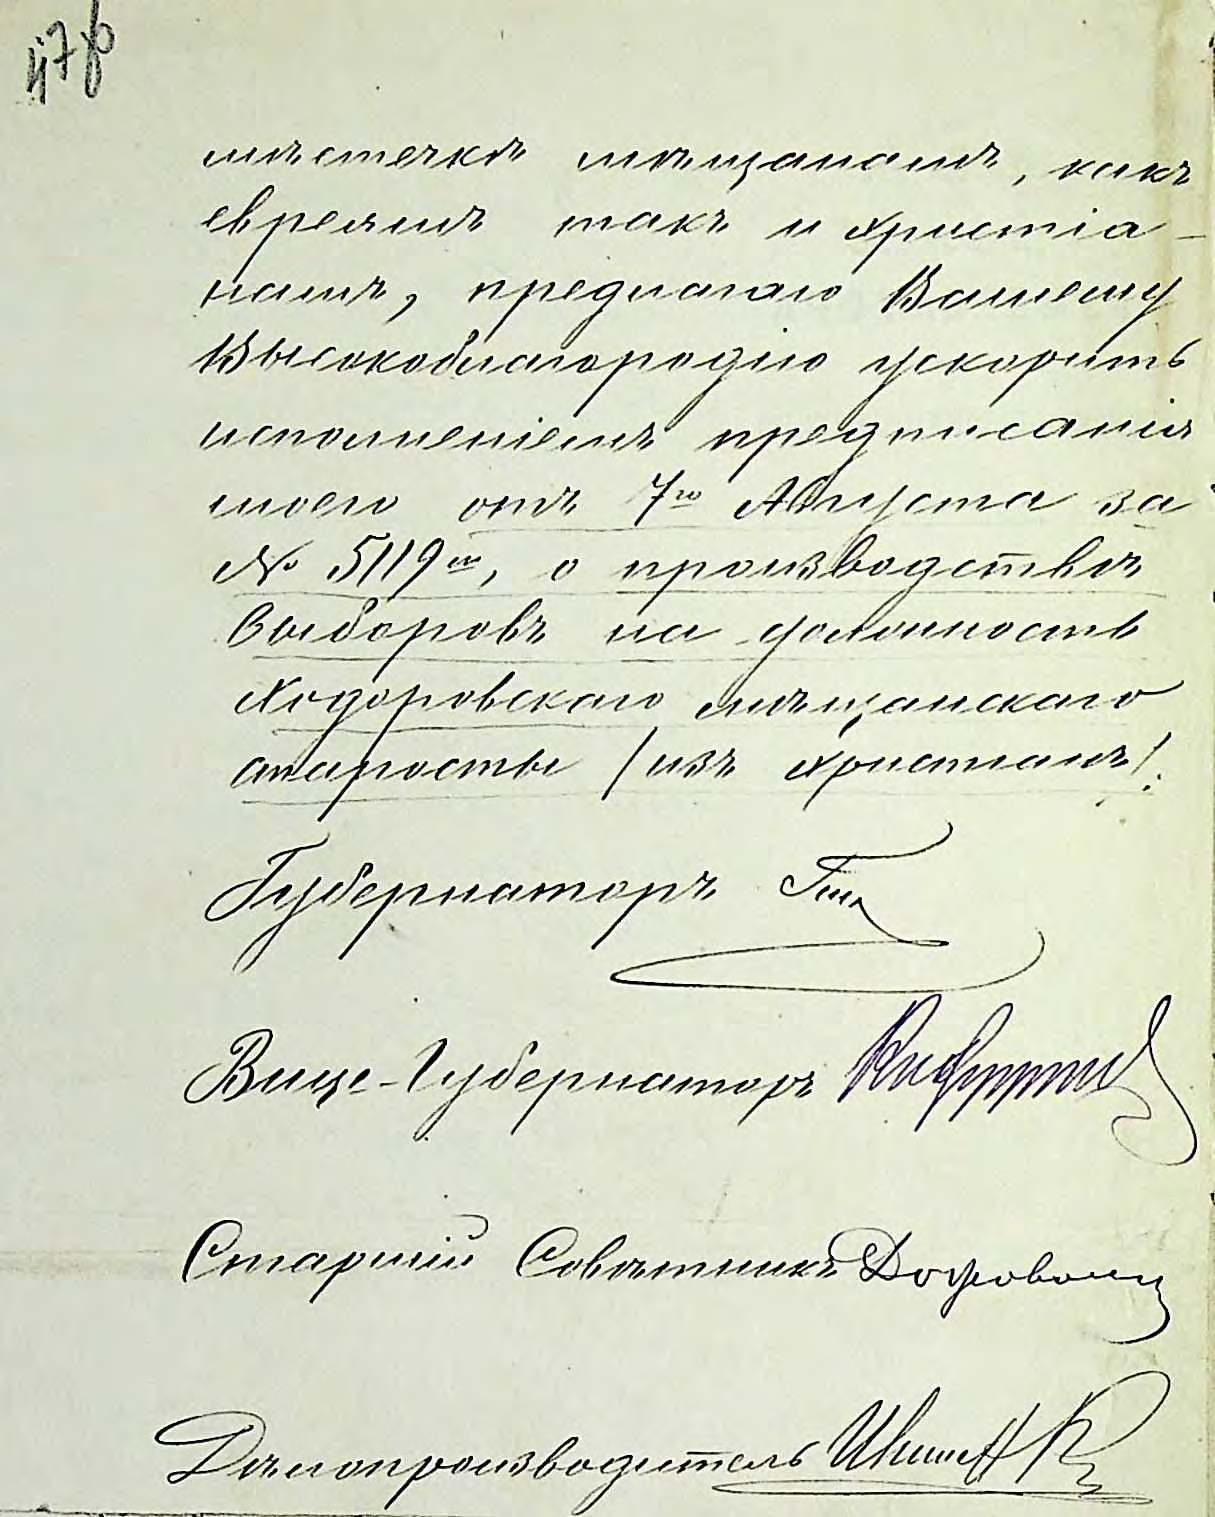 47 об
мѣстечкѣ мѣщанамъ, какъ
евреямъ такъ и христіа-
намъ, предлагаю Вашему
Высокоблагородію ускорить
исполненіемъ предписанія
моего отъ 7го Августа за
№ 5119м, о производствѣ
выборовъ на должность
Ходоровскаго мѣщанскаго
старосты /изъ христіанъ/.
Губернаторъ
Вице-Губернаторъ
Старшій Совѣтникъ
Дѣлопроизводитель